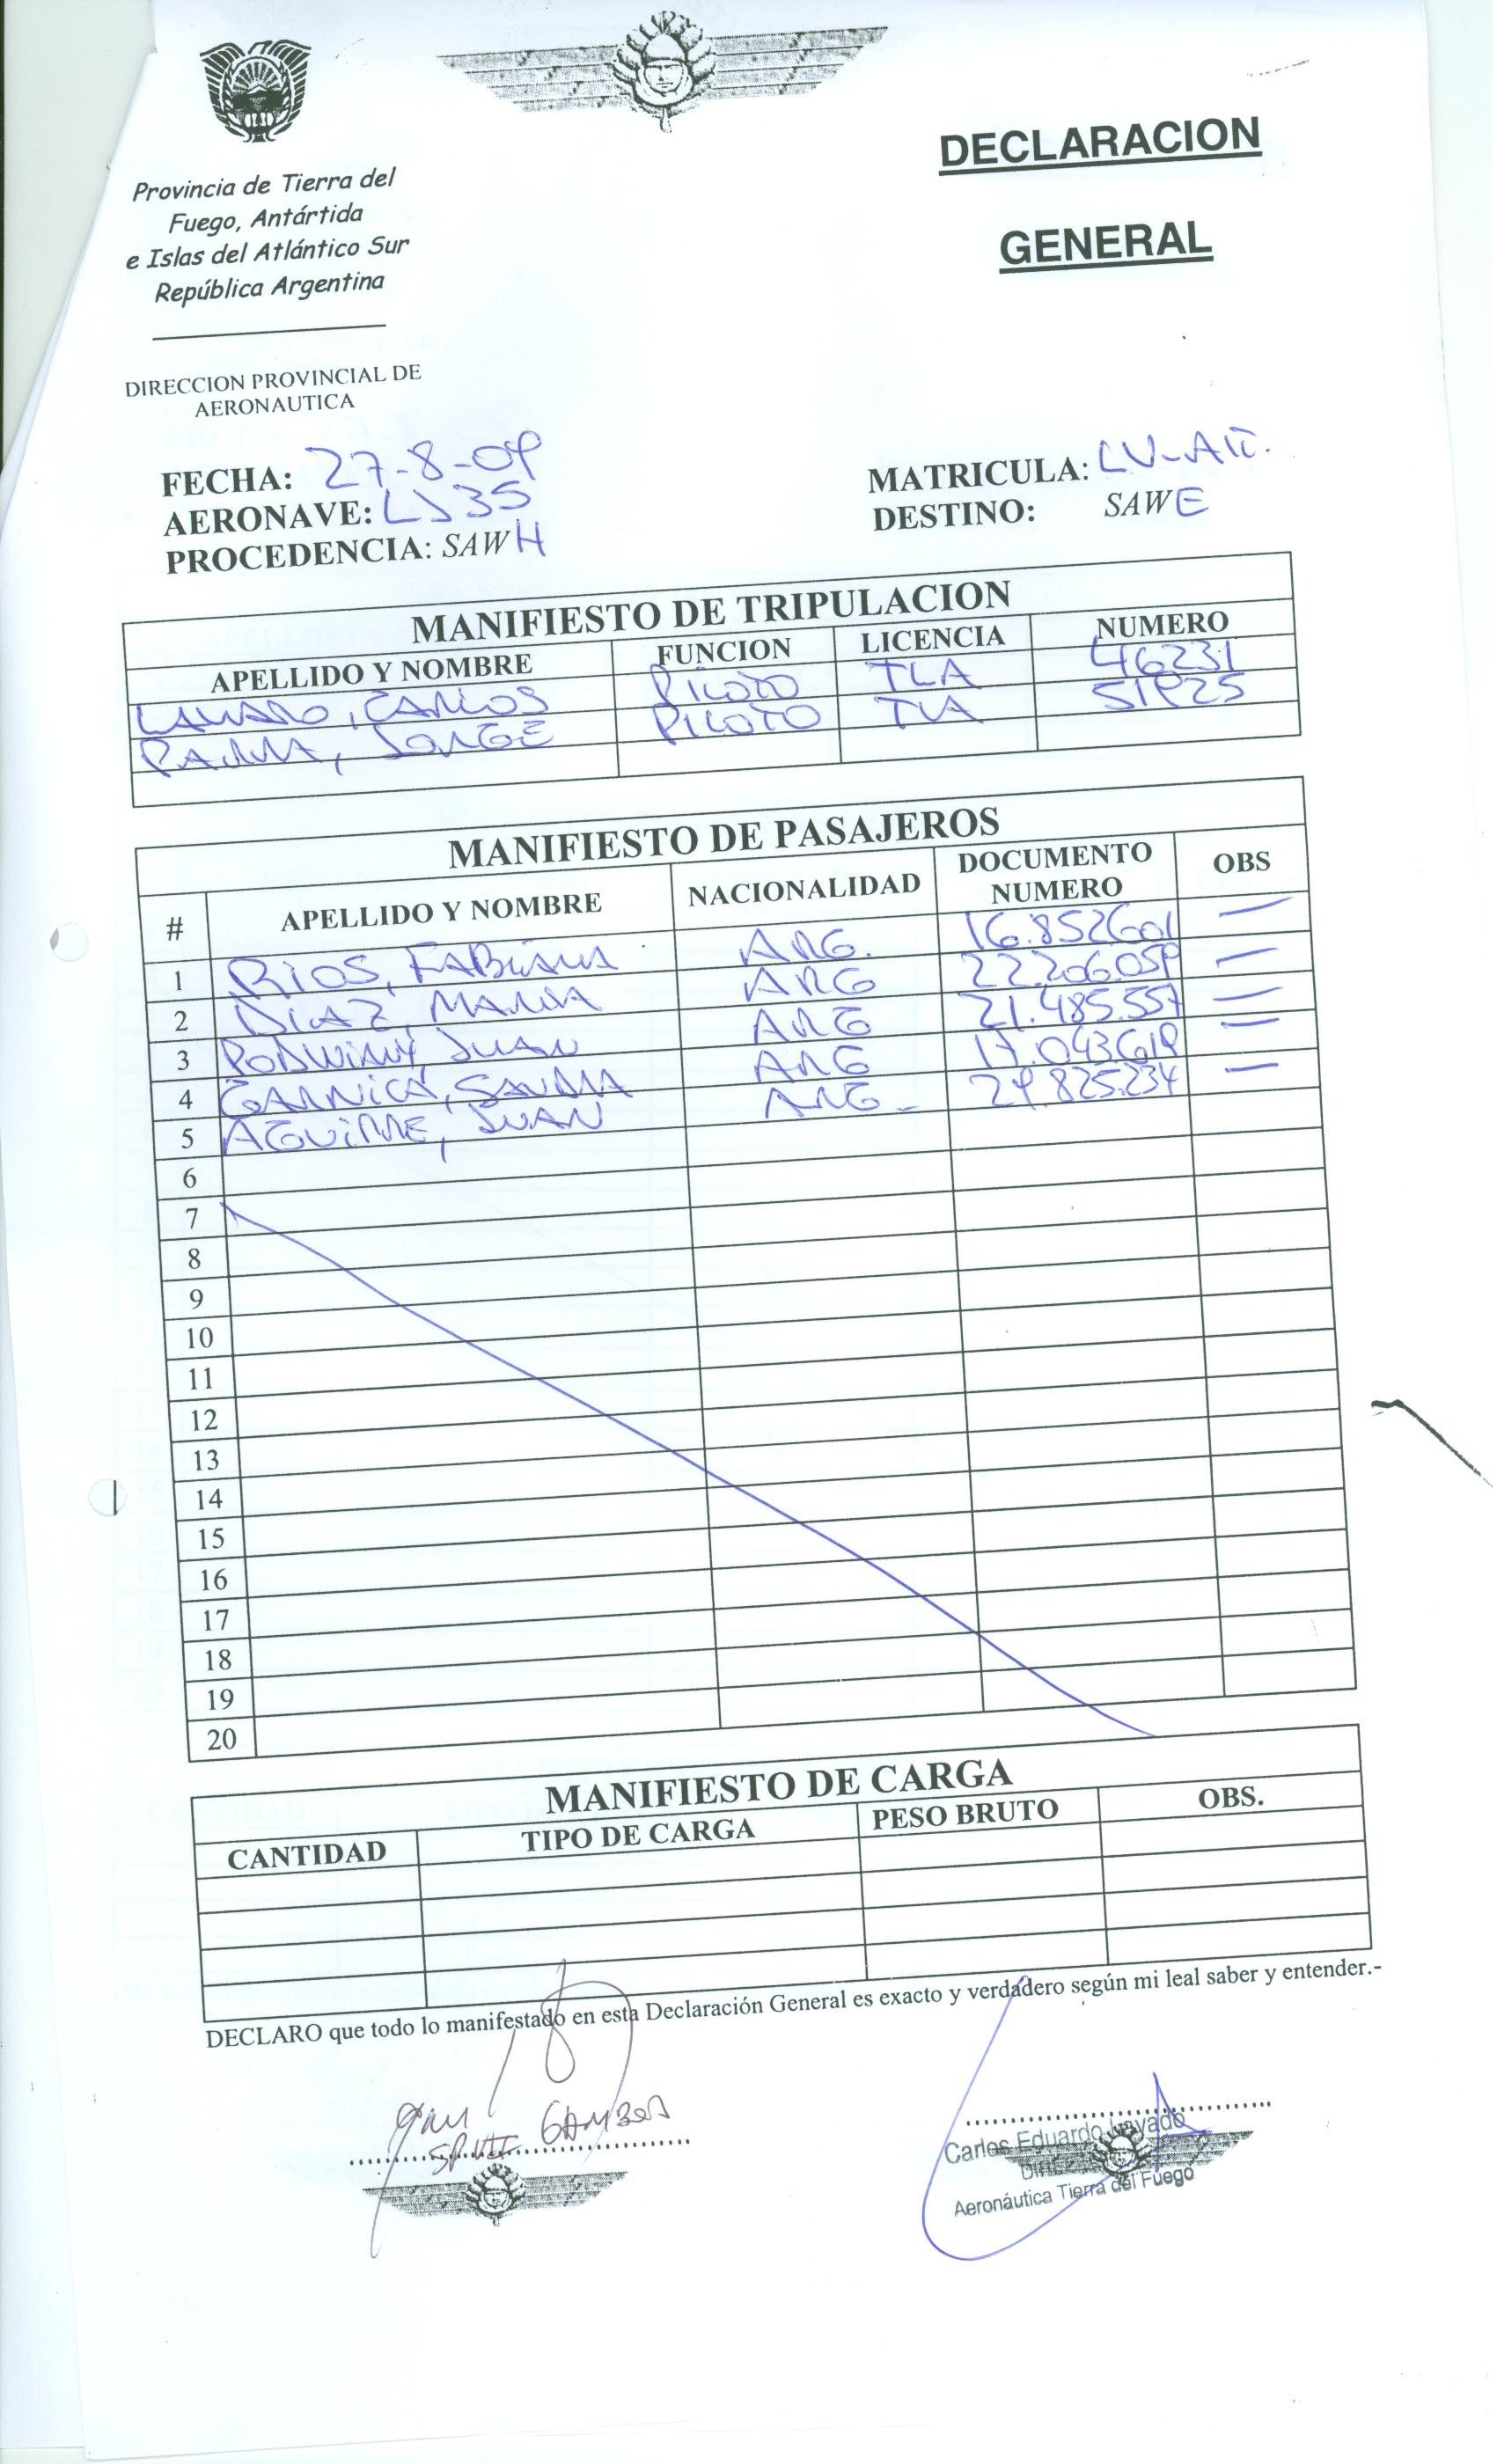 DECLARACION
GENERAL
Provincia de Tierra del
Fuego, Antártida
e Islas del Atlántico Sur
República Argentina
DIRECCION PROVINCIAL DE
AERONAUTICA
FECHA: 27-8-09
MATRICULA: LV-
AERONAVE: LJ35
DESTINO: SAWE
PROCEDENCIA: SAWH
MANIFIESTO DE TRIPULACION
APELLIDO Y NOMBRE FUNCION LICENCIA NUMERO
CARLOS PILOTO TLA 46231
PARRA, JORGE PILOTO TLA 51925
MANIFIESTO DE PASAJEROS
# APELLIDO Y NOMBRE NACIONALIDAD DOCUMENTO NUMERO OBS
1 RIOS, FABIANA ARG. 16.852601 —
2 DIAZ, MARIA ARG 22.206.059 —
3 JUAN ARG 21.485.557 —
4 GARNICA, SANDRA ARG 17.043619 —
5 AGUIRRE, JUAN ARG - 29.825.234 —
6
7
8
9
10
11
12
13
14
15
16
17
18
19
20
MANIFIESTO DE CARGA
CANTIDAD TIPO DE CARGA PESO BRUTO OBS.
DECLARO que todo lo manifestado en esta Declaración General es exacto y verdadero según mi leal saber y entender.-
GAMBOA
Carlos Eduardo Lavado
Aeronáutica Tierra del Fuego